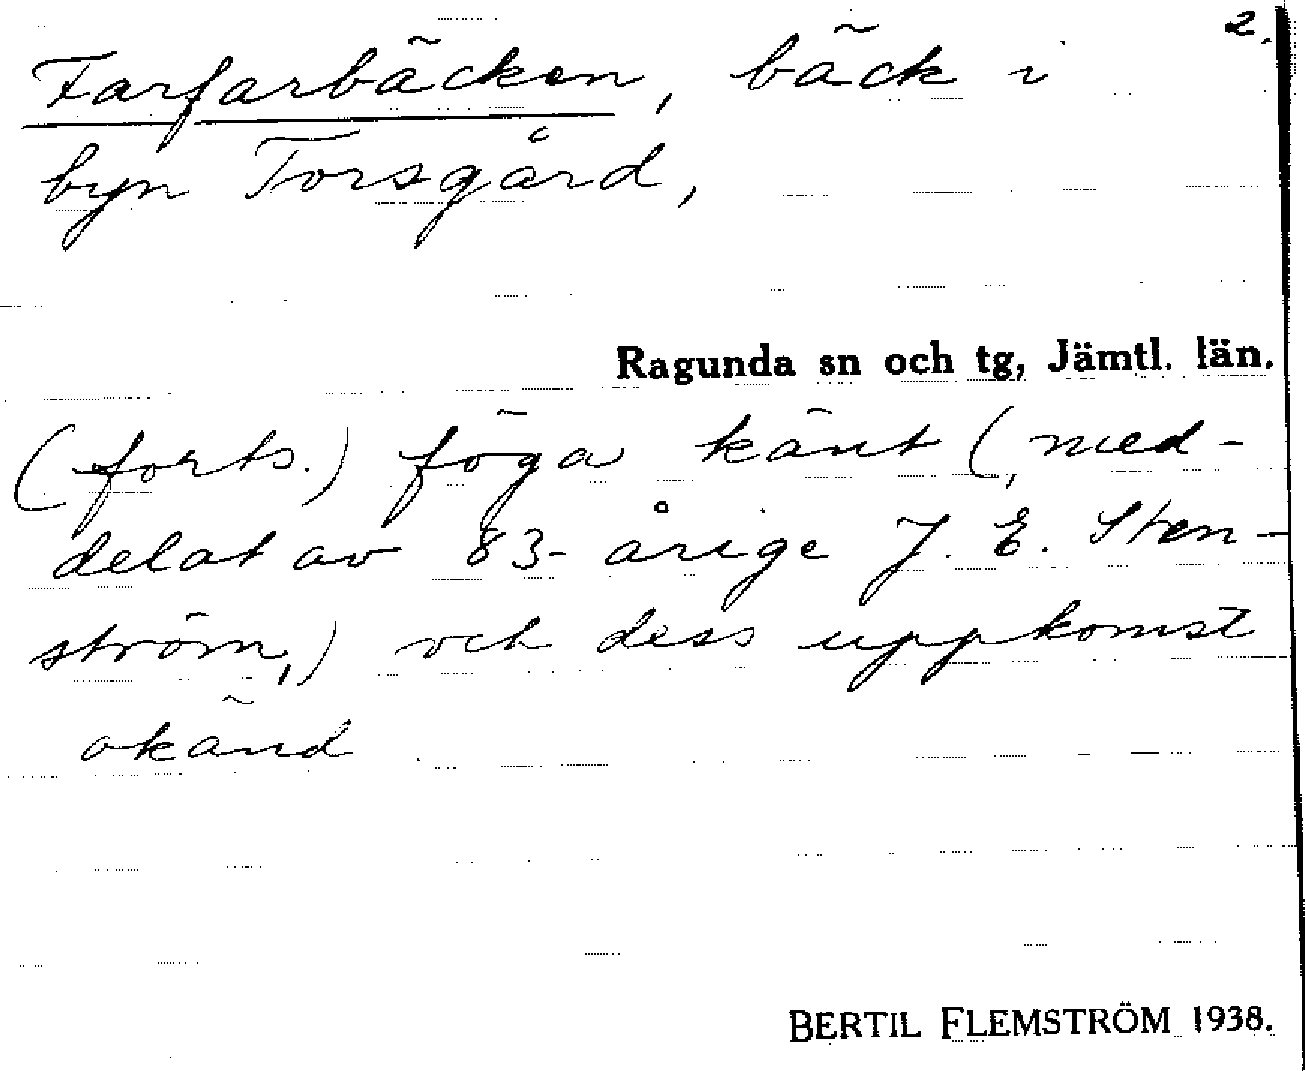 2.
Farfarbäcken, bäck i
byn Torsgård,
Ragunda sn och tg, Jämtl. län.
(forts.) föga känt (, med-
delat av 83-årige J. E. Sten-
ström,) och dess uppkomst
okänd
BERTIL FLEMSTRÖM 1938.